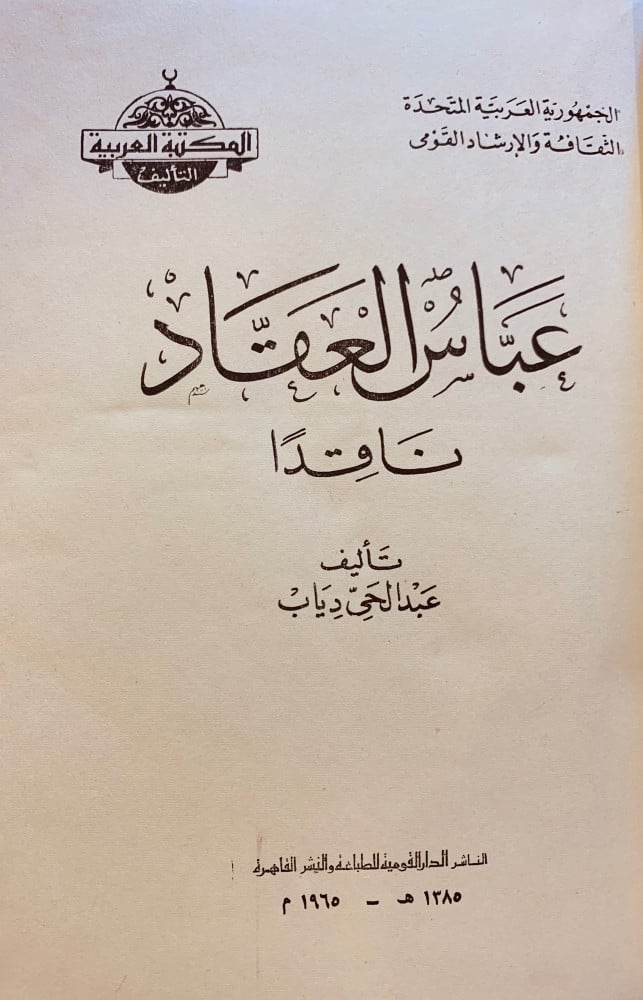 الجمهورية العربية المتحدة
الثقافة والإرشاد القومى
المكتبة العربية
التأليف
عَبَّاسُ الْعَقَّادْ
نَاقِدًا
تَأليف
عَبْدالحَيّ دِيَابْ
الناشر الدار القومية للطباعة والنشر القاهرة
١٣٨٥ هـ – ١٩٦٥ م